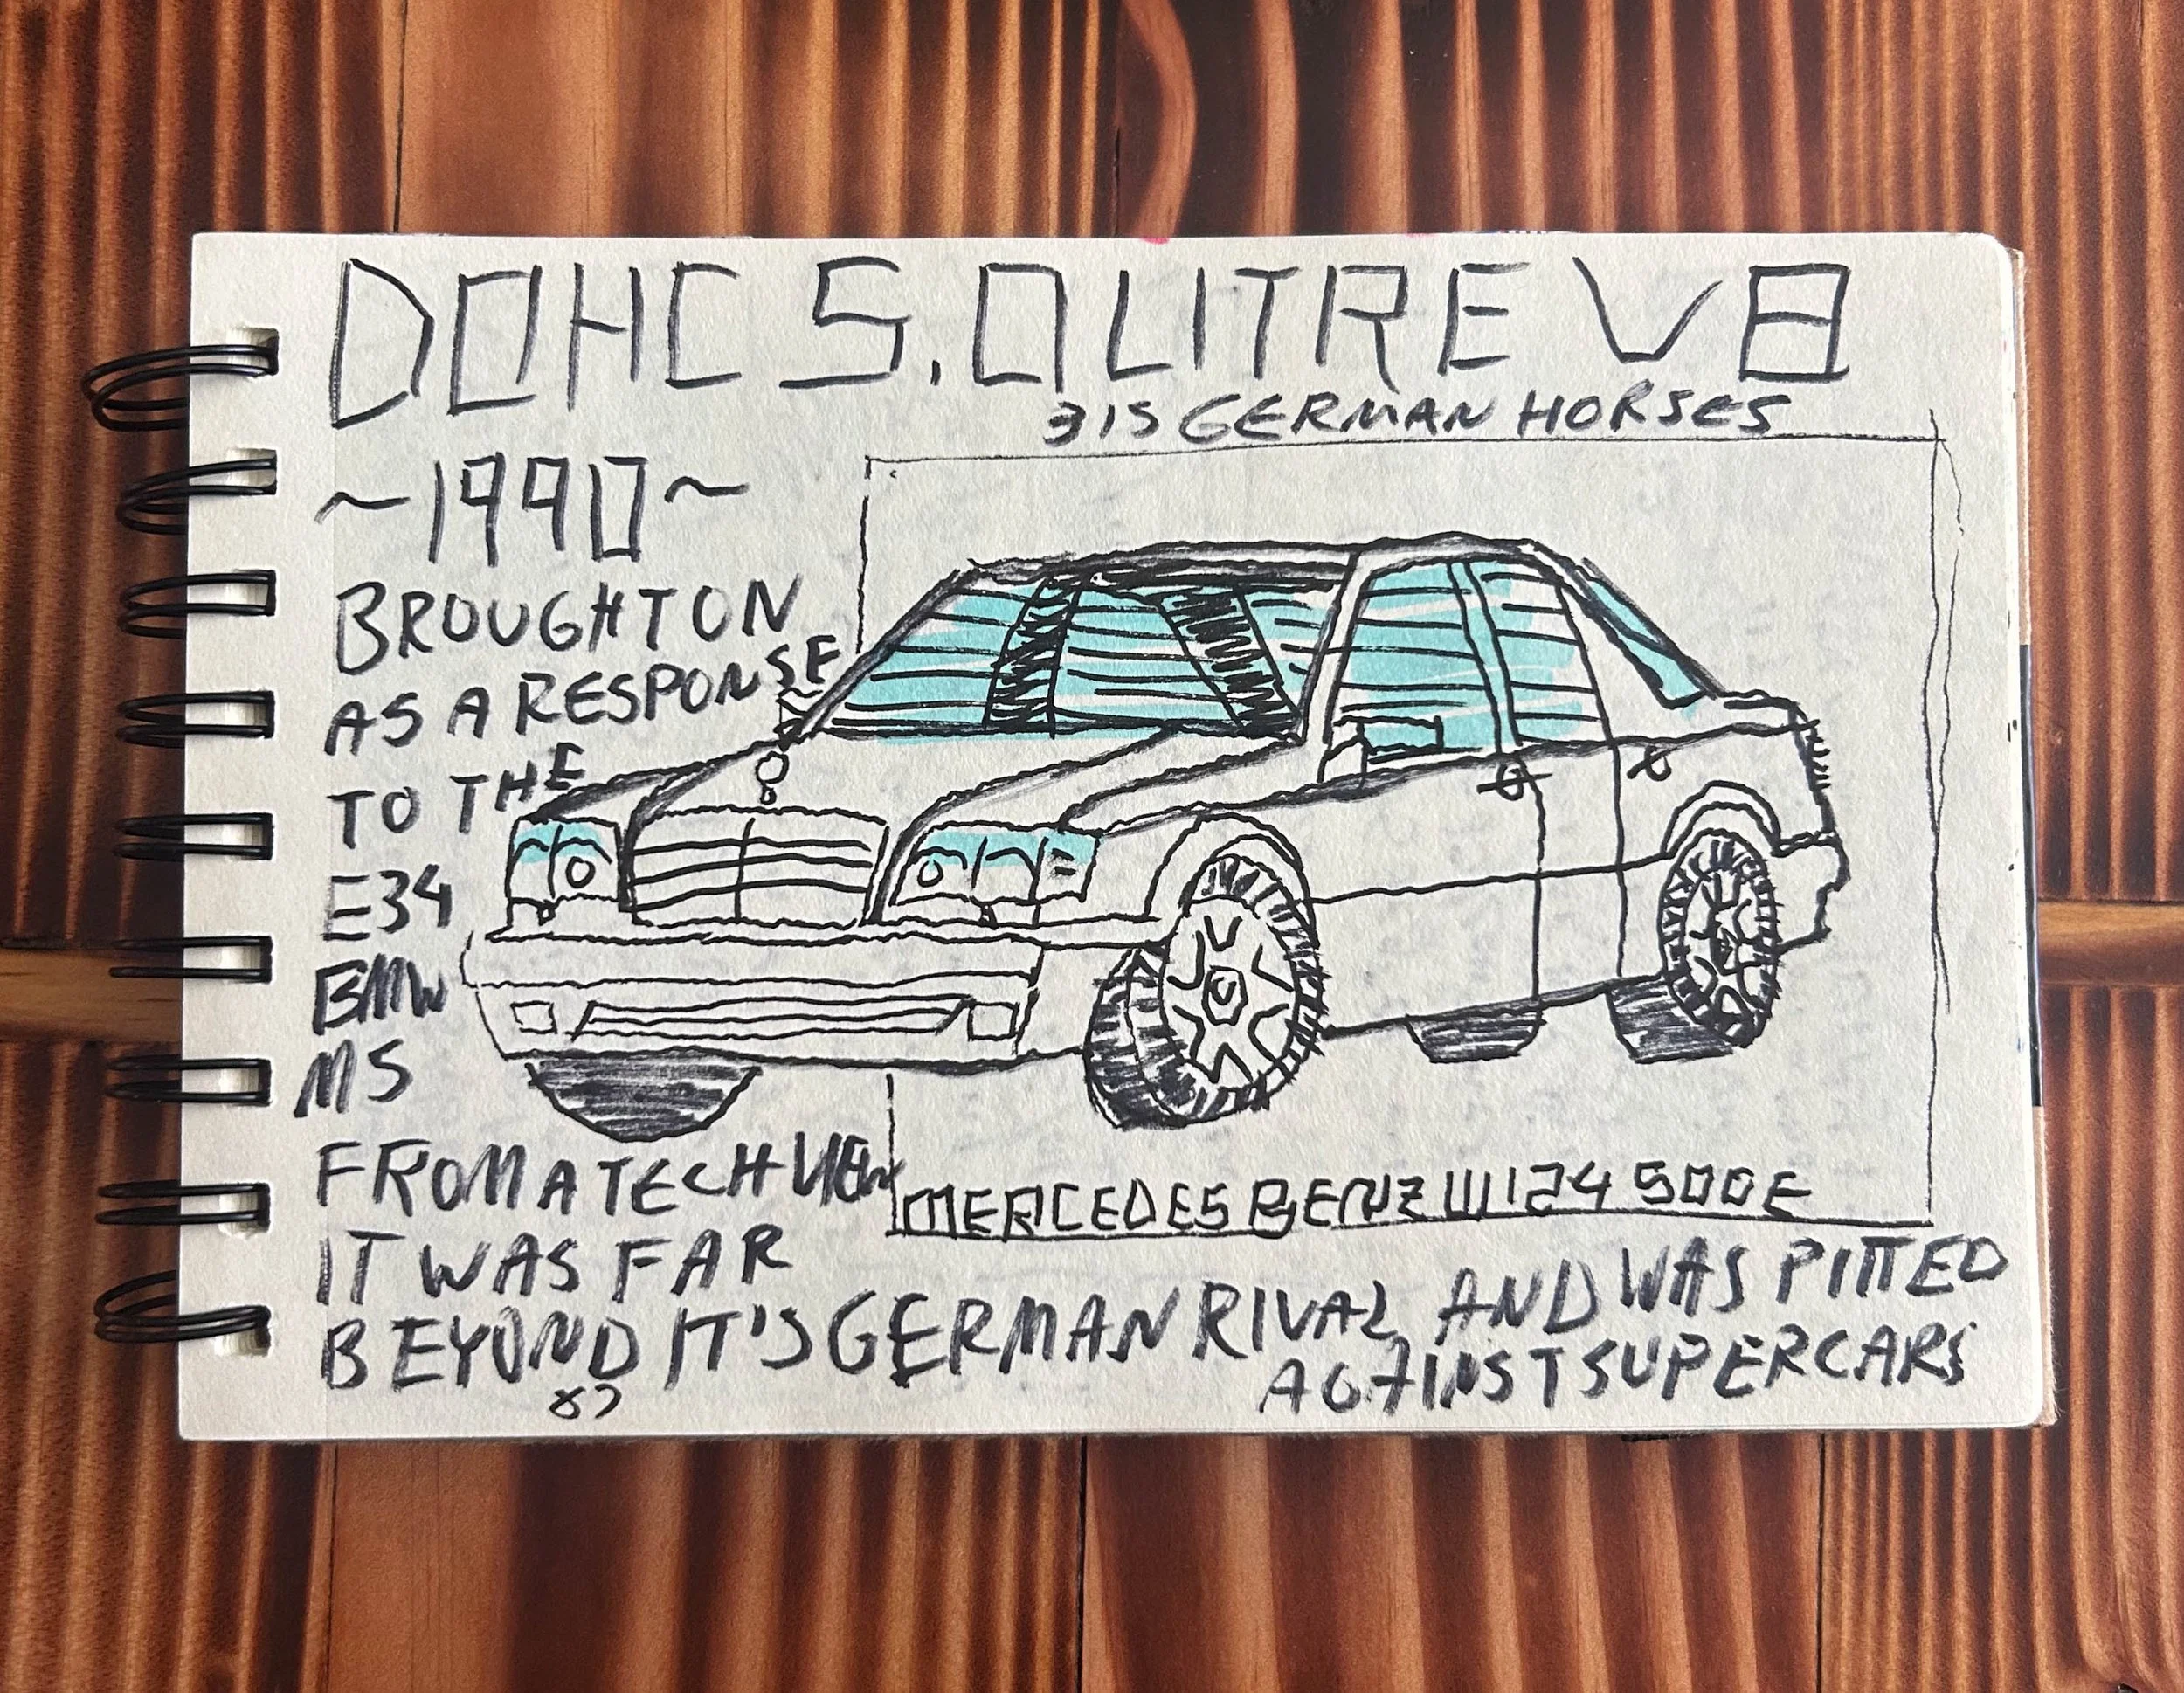 DOHC 5.0 LITRE V8
315 GERMAN HORSES
~1990~
BROUGHT ON
AS A RESPONSE
TO THE
E34
BMW
M5
FROM A TECH VIEW
MERCEDES BENZ W124 500E
IT WAS FAR
BEYOND IT'S GERMAN RIVAL AND WAS PITTED
AGAINST SUPERCARS